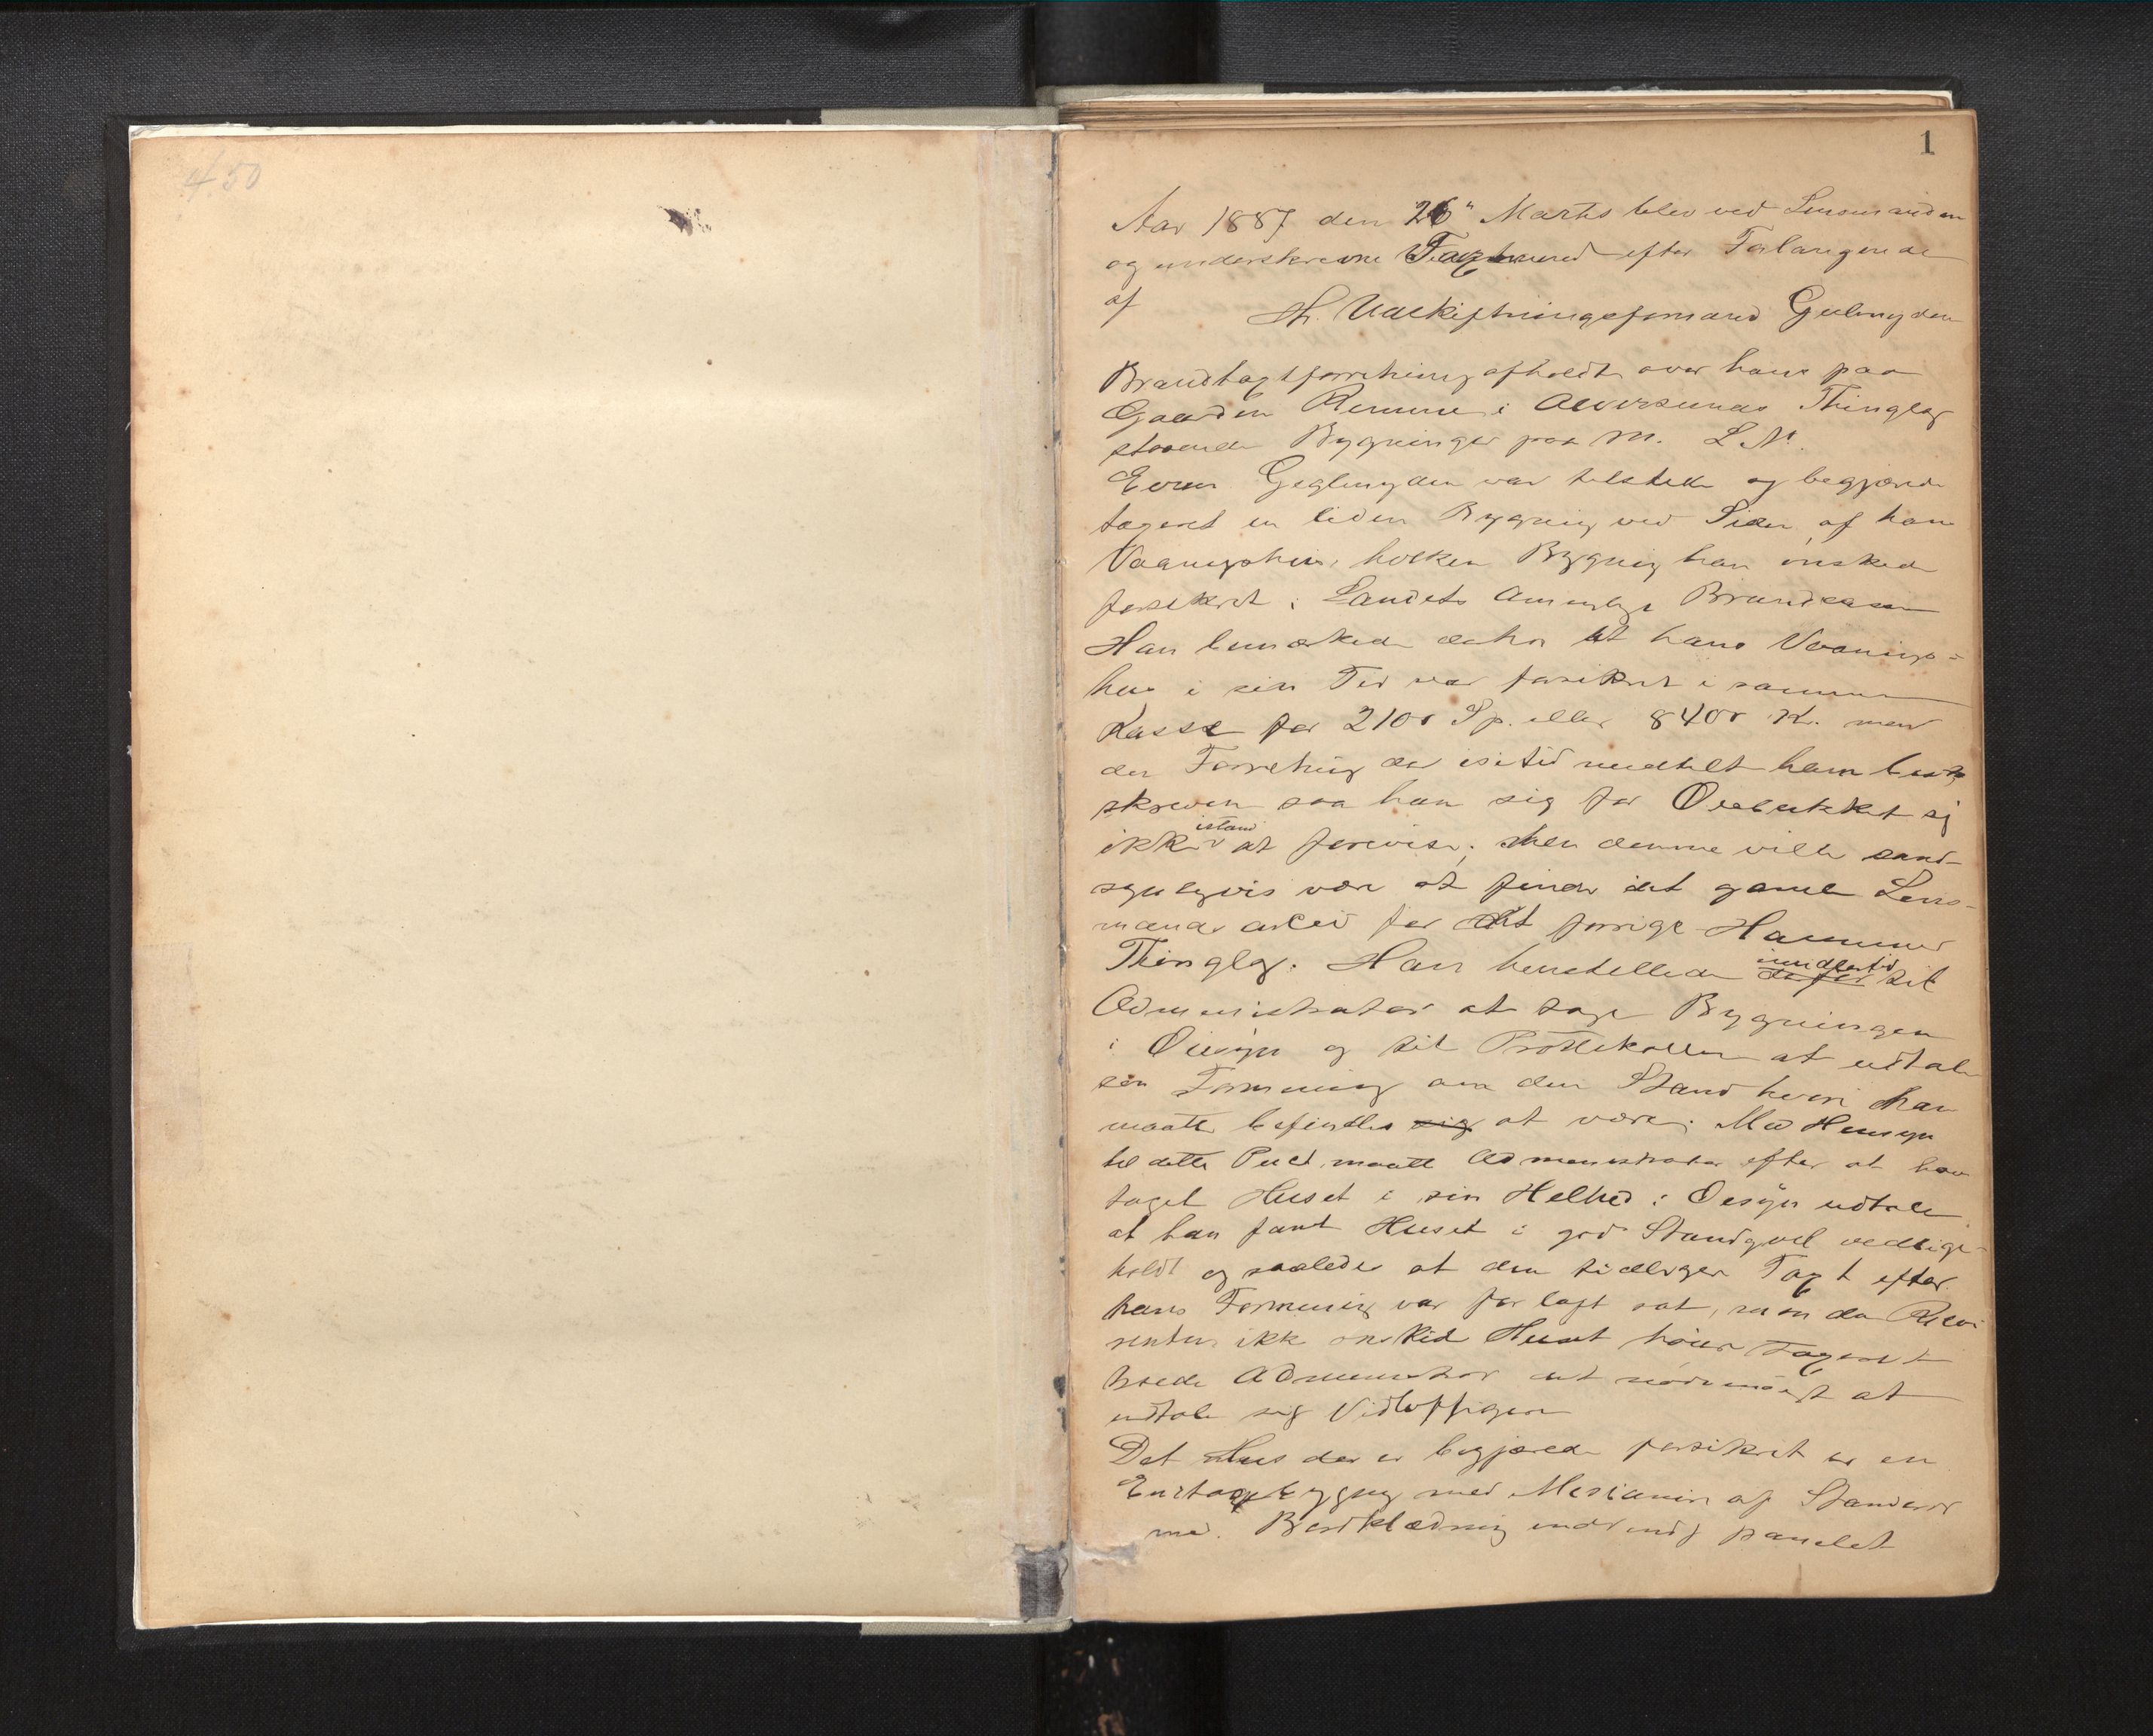 450
1
Aar 1887 den 26" Marts blev ved Lensmanden
og underskrevne Taxtmænd efter Forlangende
af Hr. Udskiftningsformand
Brandtaxtforretning afholdt over hans paa
Gaarden i Alversunds Thinglag
staaende Bygninger paa M. L. Nr.
Eieren var tilstede og begjærede
taxeret en liden Bygning ved Siden af hans
Vaaningshus, hvilken Bygning han ønskede
forsikret i Landets Almindelige Brandkasse
Han bemærkede derhos at hans Vaanings-
hus i sin Tid var forsikret i samme
Kasse for 2100 Sp. eller 8400 Kr. men
den Forretning der isitid meddelt ham
skreven saa han sig for Øieblikket ej
ikke istand at forevise; Men denne ville sand-
synligvis være at finde i det gamle Lens-
mands arkiv for det forrige Hammer
Thinglag. Han henstillede derfor imidlertid til
Administrator at tage Bygningen
i Øiesyn og til Protokollen at udtale
sin Formening om den Stand hvori han
maatte befindes sig at være. Med Hensyn
til dette Punct maatte Administrator efter at have
taget Huset i sin Helhed i Øiesyn udtale
at han fant Huset i god Stand vel vedlige-
holdt og saaledes at den tidligere Taxt efter
hans Formening var for lavt sat, men da Rekvi
renten ikke ønsked Huset høiere Taxeret
havde Administrator det nødvendigt at
udtale sig Vidløftigere
Det Hus der er begjæret forsikret er en
Enetages Bygning med af
med Bordklædning indvendig panelet